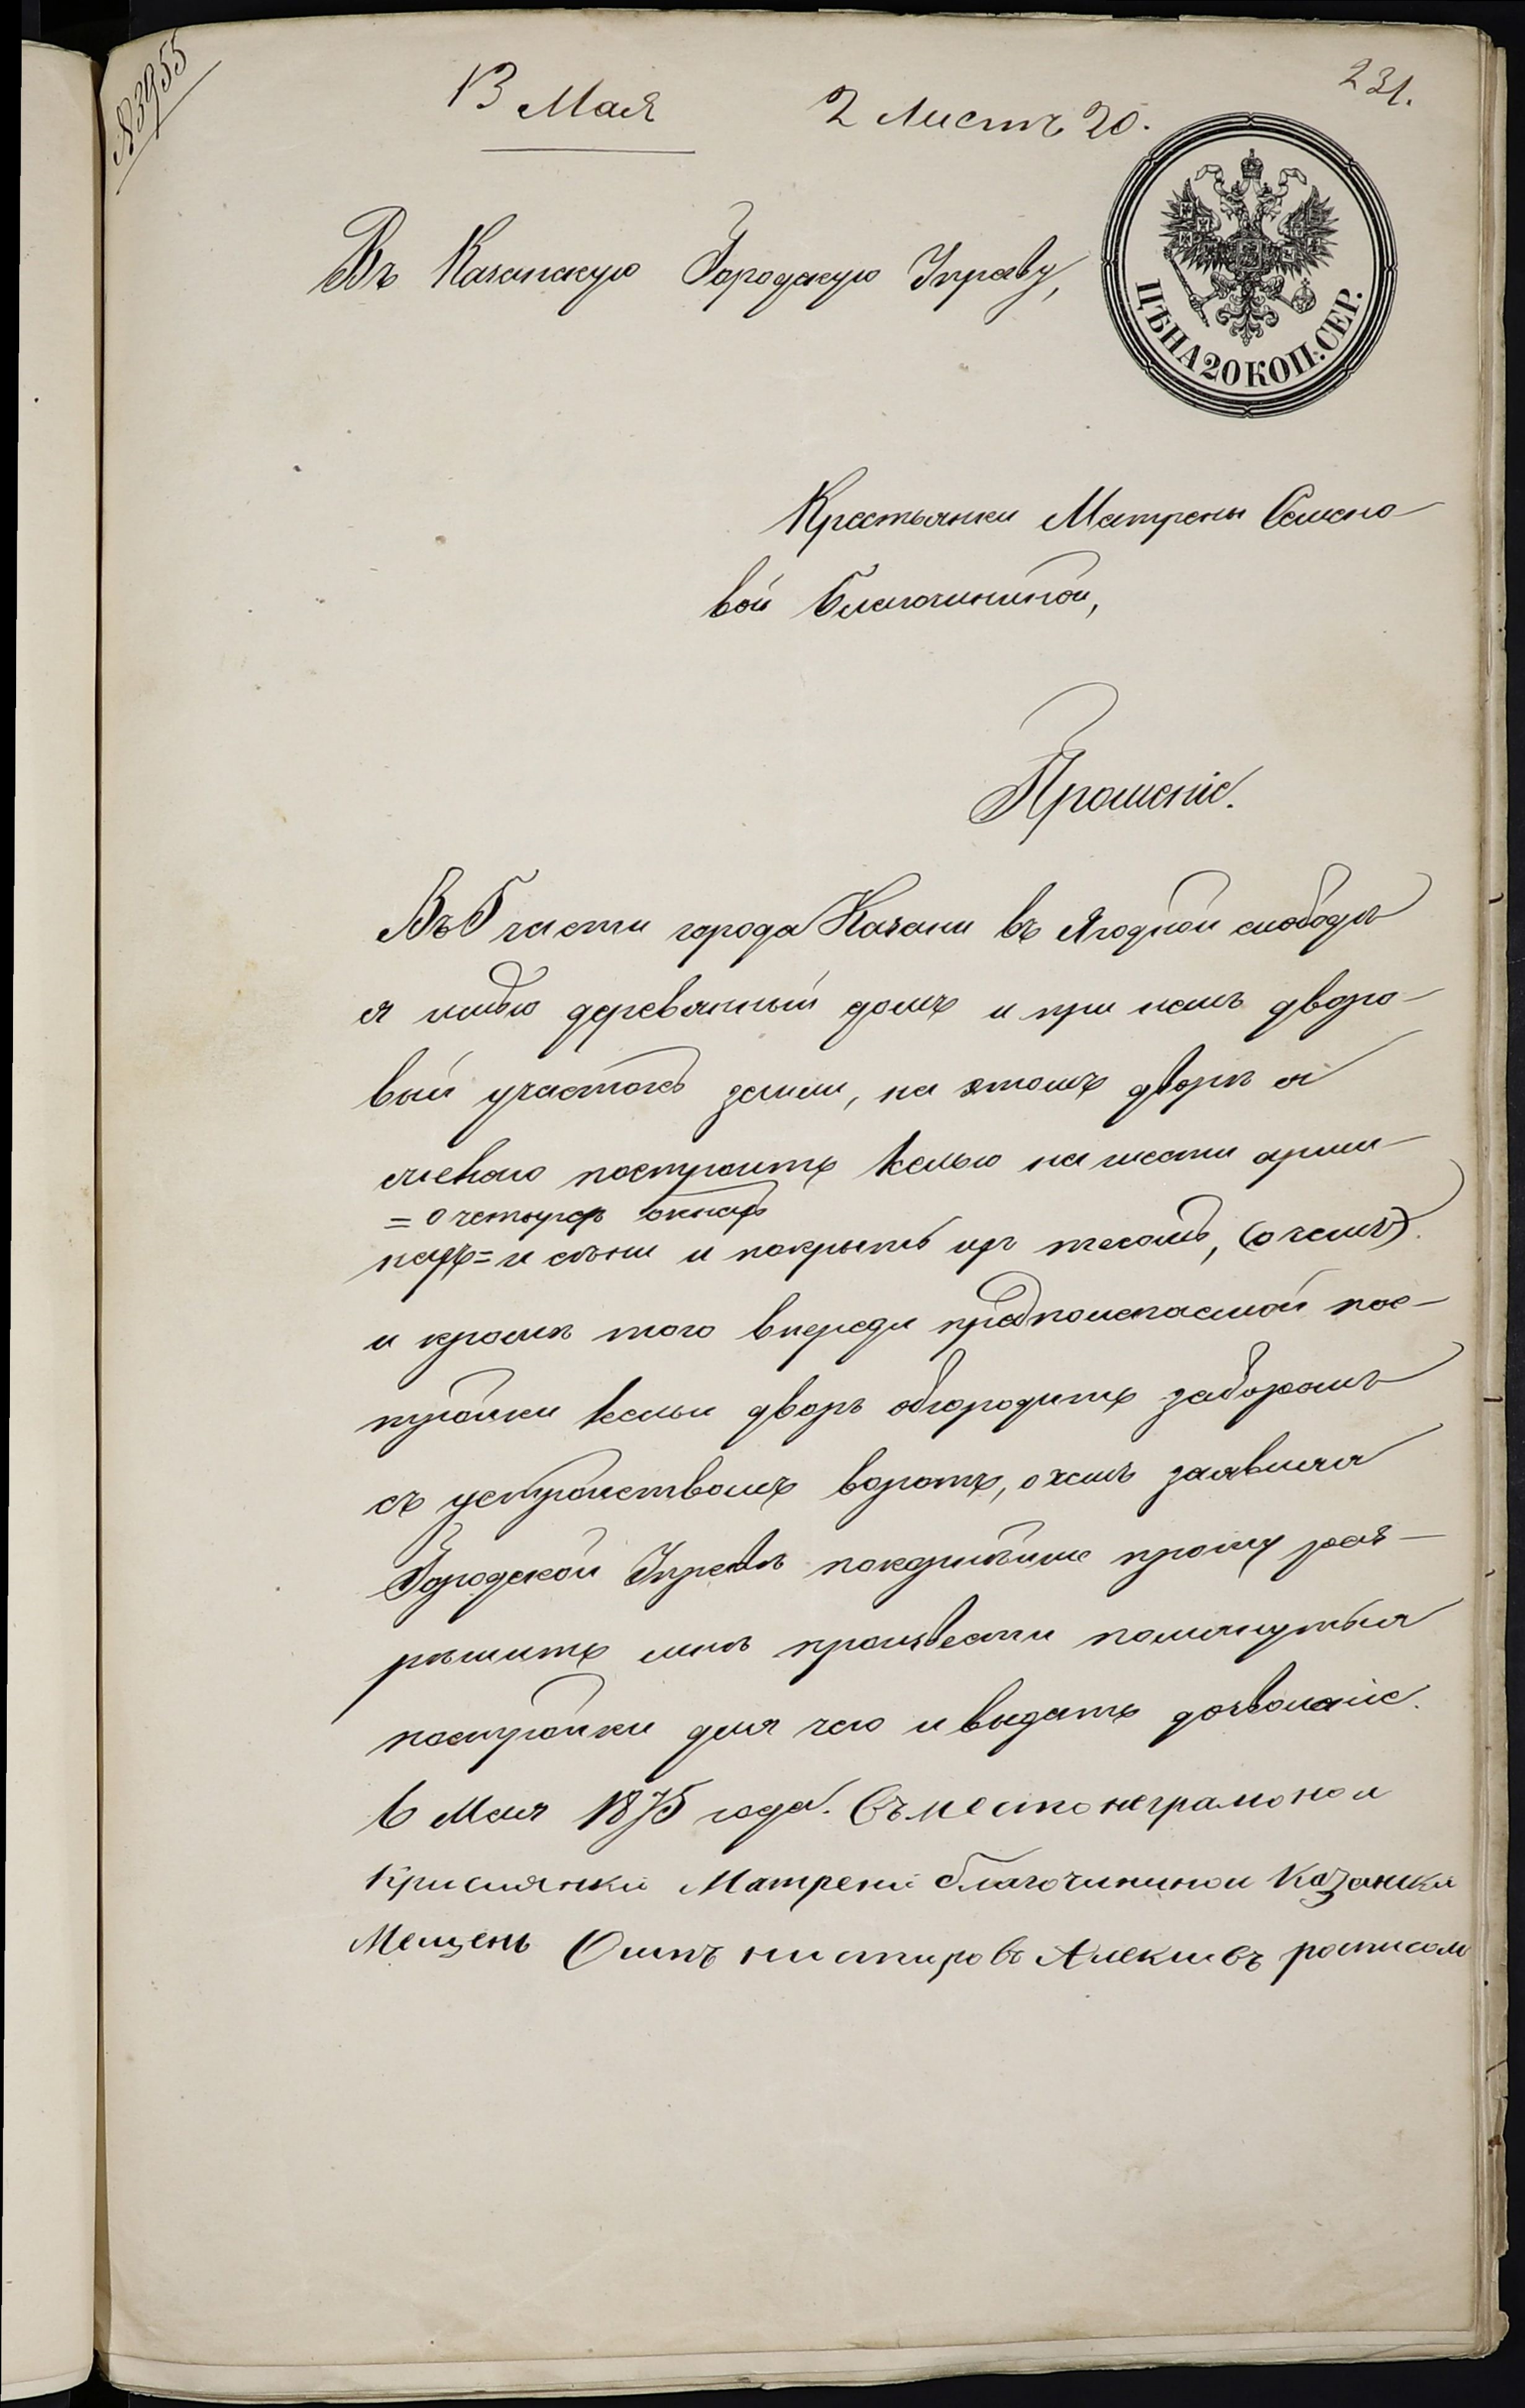 № 3955
13 Мая 2 Листъ 20.
231.
ЦѢНА 20 КОП: СЕР.
Въ Казанскую Городскую Управу,
Крестьянки Матрены Семено-
вой Благочининой,
Прошеніе.
Въ 5 части города Казани въ Ягодной слободѣ
я имѣю деревянный домъ и при немъ дворо-
вый участокъ земли, на этомъ дворѣ я
желаю построить келью на шести арши-
= о четырехъ окнахъ
нахъ = и сѣни и покрыть ихъ тесомъ, (о чемъ).
и кромѣ того впереди предполагаемой пос-
тройки кельи дворъ обгородить заборомъ
съ устройствомъ воротъ, о чемъ заявляя
Городской Управѣ покорнѣйше прошу раз-
рѣшить мнѣ произвести помянутыя
постройки для чего и выдать дозволеніе.
6 Мая 1875 года. Въместо неграмоной
крисиянки Матрени благочининои Казански
Мещень нистировъ Алексиевъ росписался